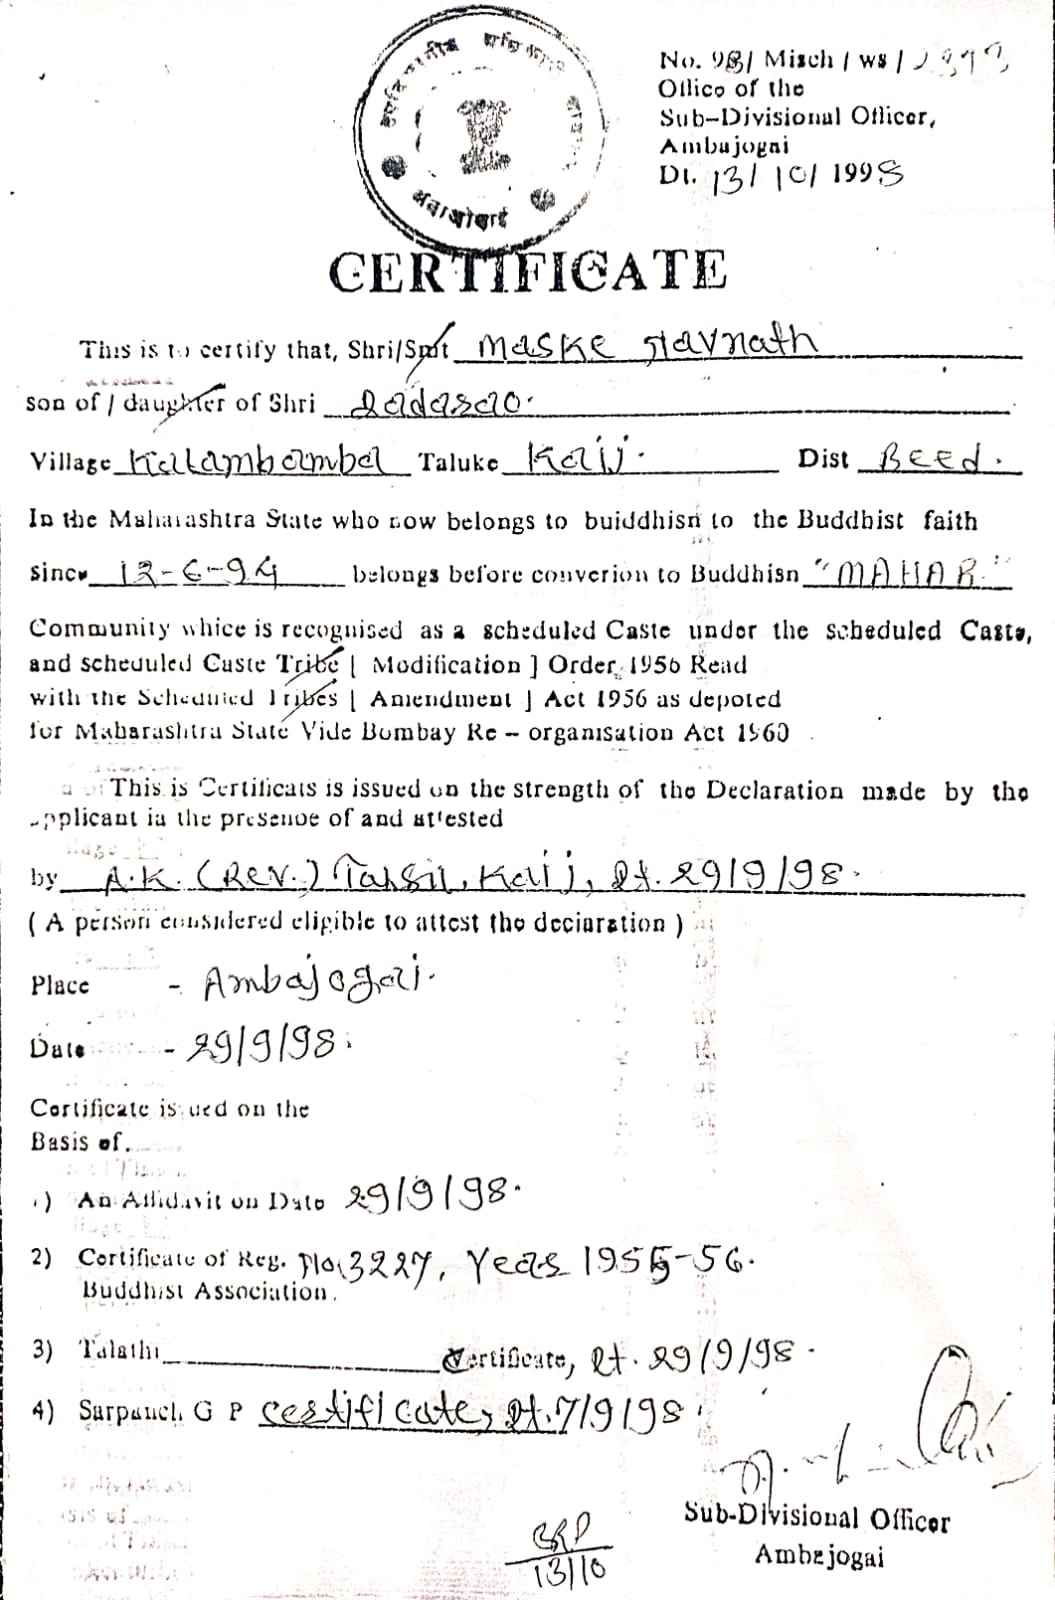 उपविभागीय अधिकारी
अंबाजोगाई
No. 98/ Misch / ws /
Office of the
Sub-Divisional Officer,
Ambajogai
Dt. 13/ 10/ 1998
CERTIFICATE
This is to certify that, Shri/Smt Maske Navnath
son of / daughter of Shri Dadarao.
Village Kalambamba Taluke Kaij. Dist Beed.
In the Maharashtra State who now belongs to buiddhisn to the Buddhist faith
since 12-6-94 belongs before converion to Buddhisn "MAHAR."
Community whice is recognised as a scheduled Caste under the scheduled Caste,
and scheduled Caste Tribe [ Modification ] Order, 1956 Read
with the Scheduled Tribes [ Amendment ] Act 1956 as depoted
for Maharashtra State Vide Bombay Re - organisation Act 1960
This is Certificats is issued on the strength of the Declaration made by the
applicant in the presenoe of and attested
by A.K. (Rev.) Tahsil, Kaij, Dt. 29/9/98.
( A person considered eligible to attest the declaration )
Place - Ambajogai.
Date - 29/9/98.
Certificate issued on the
Basis of.
1) An Affidavit on Date 29/9/98.
2) Certificate of Reg. No. 3227, Years 1955-56.
Buddhist Association.
3) Talathi Certificate, Dt. 29/9/98.
4) Sarpanch G P Certificate, Dt. 7/9/98.
Sub-Divisional Officer
Ambajogai
13/10